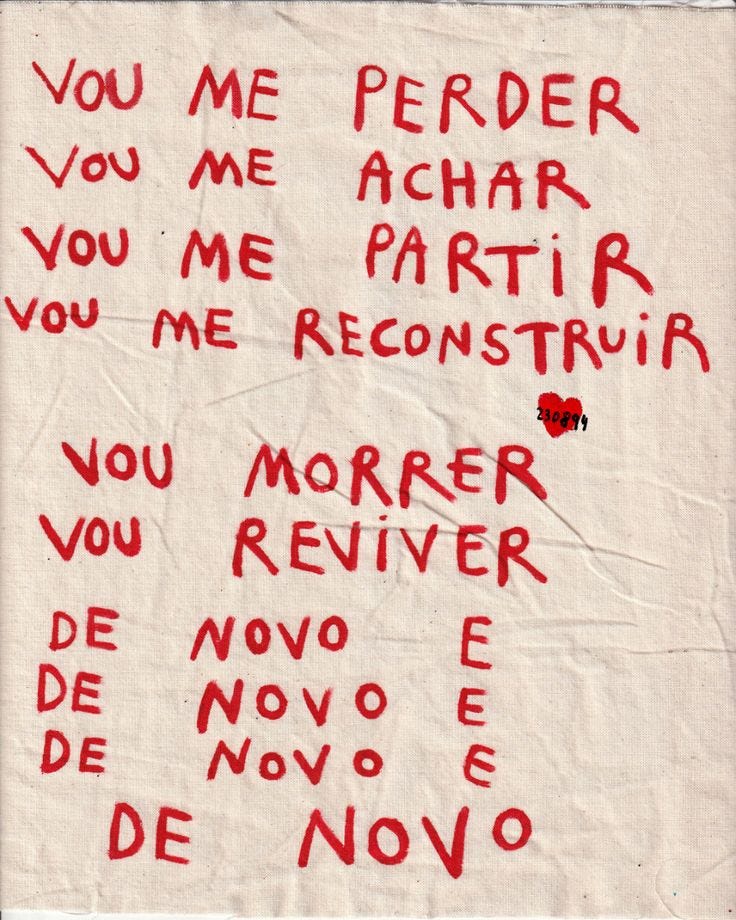 VOU ME PERDER
VOU ME ACHAR
VOU ME PARTIR
VOU ME RECONSTRUIR
230894
VOU MORRER
VOU REVIVER
DE NOVO E
DE NOVO E
DE NOVO E
DE NOVO